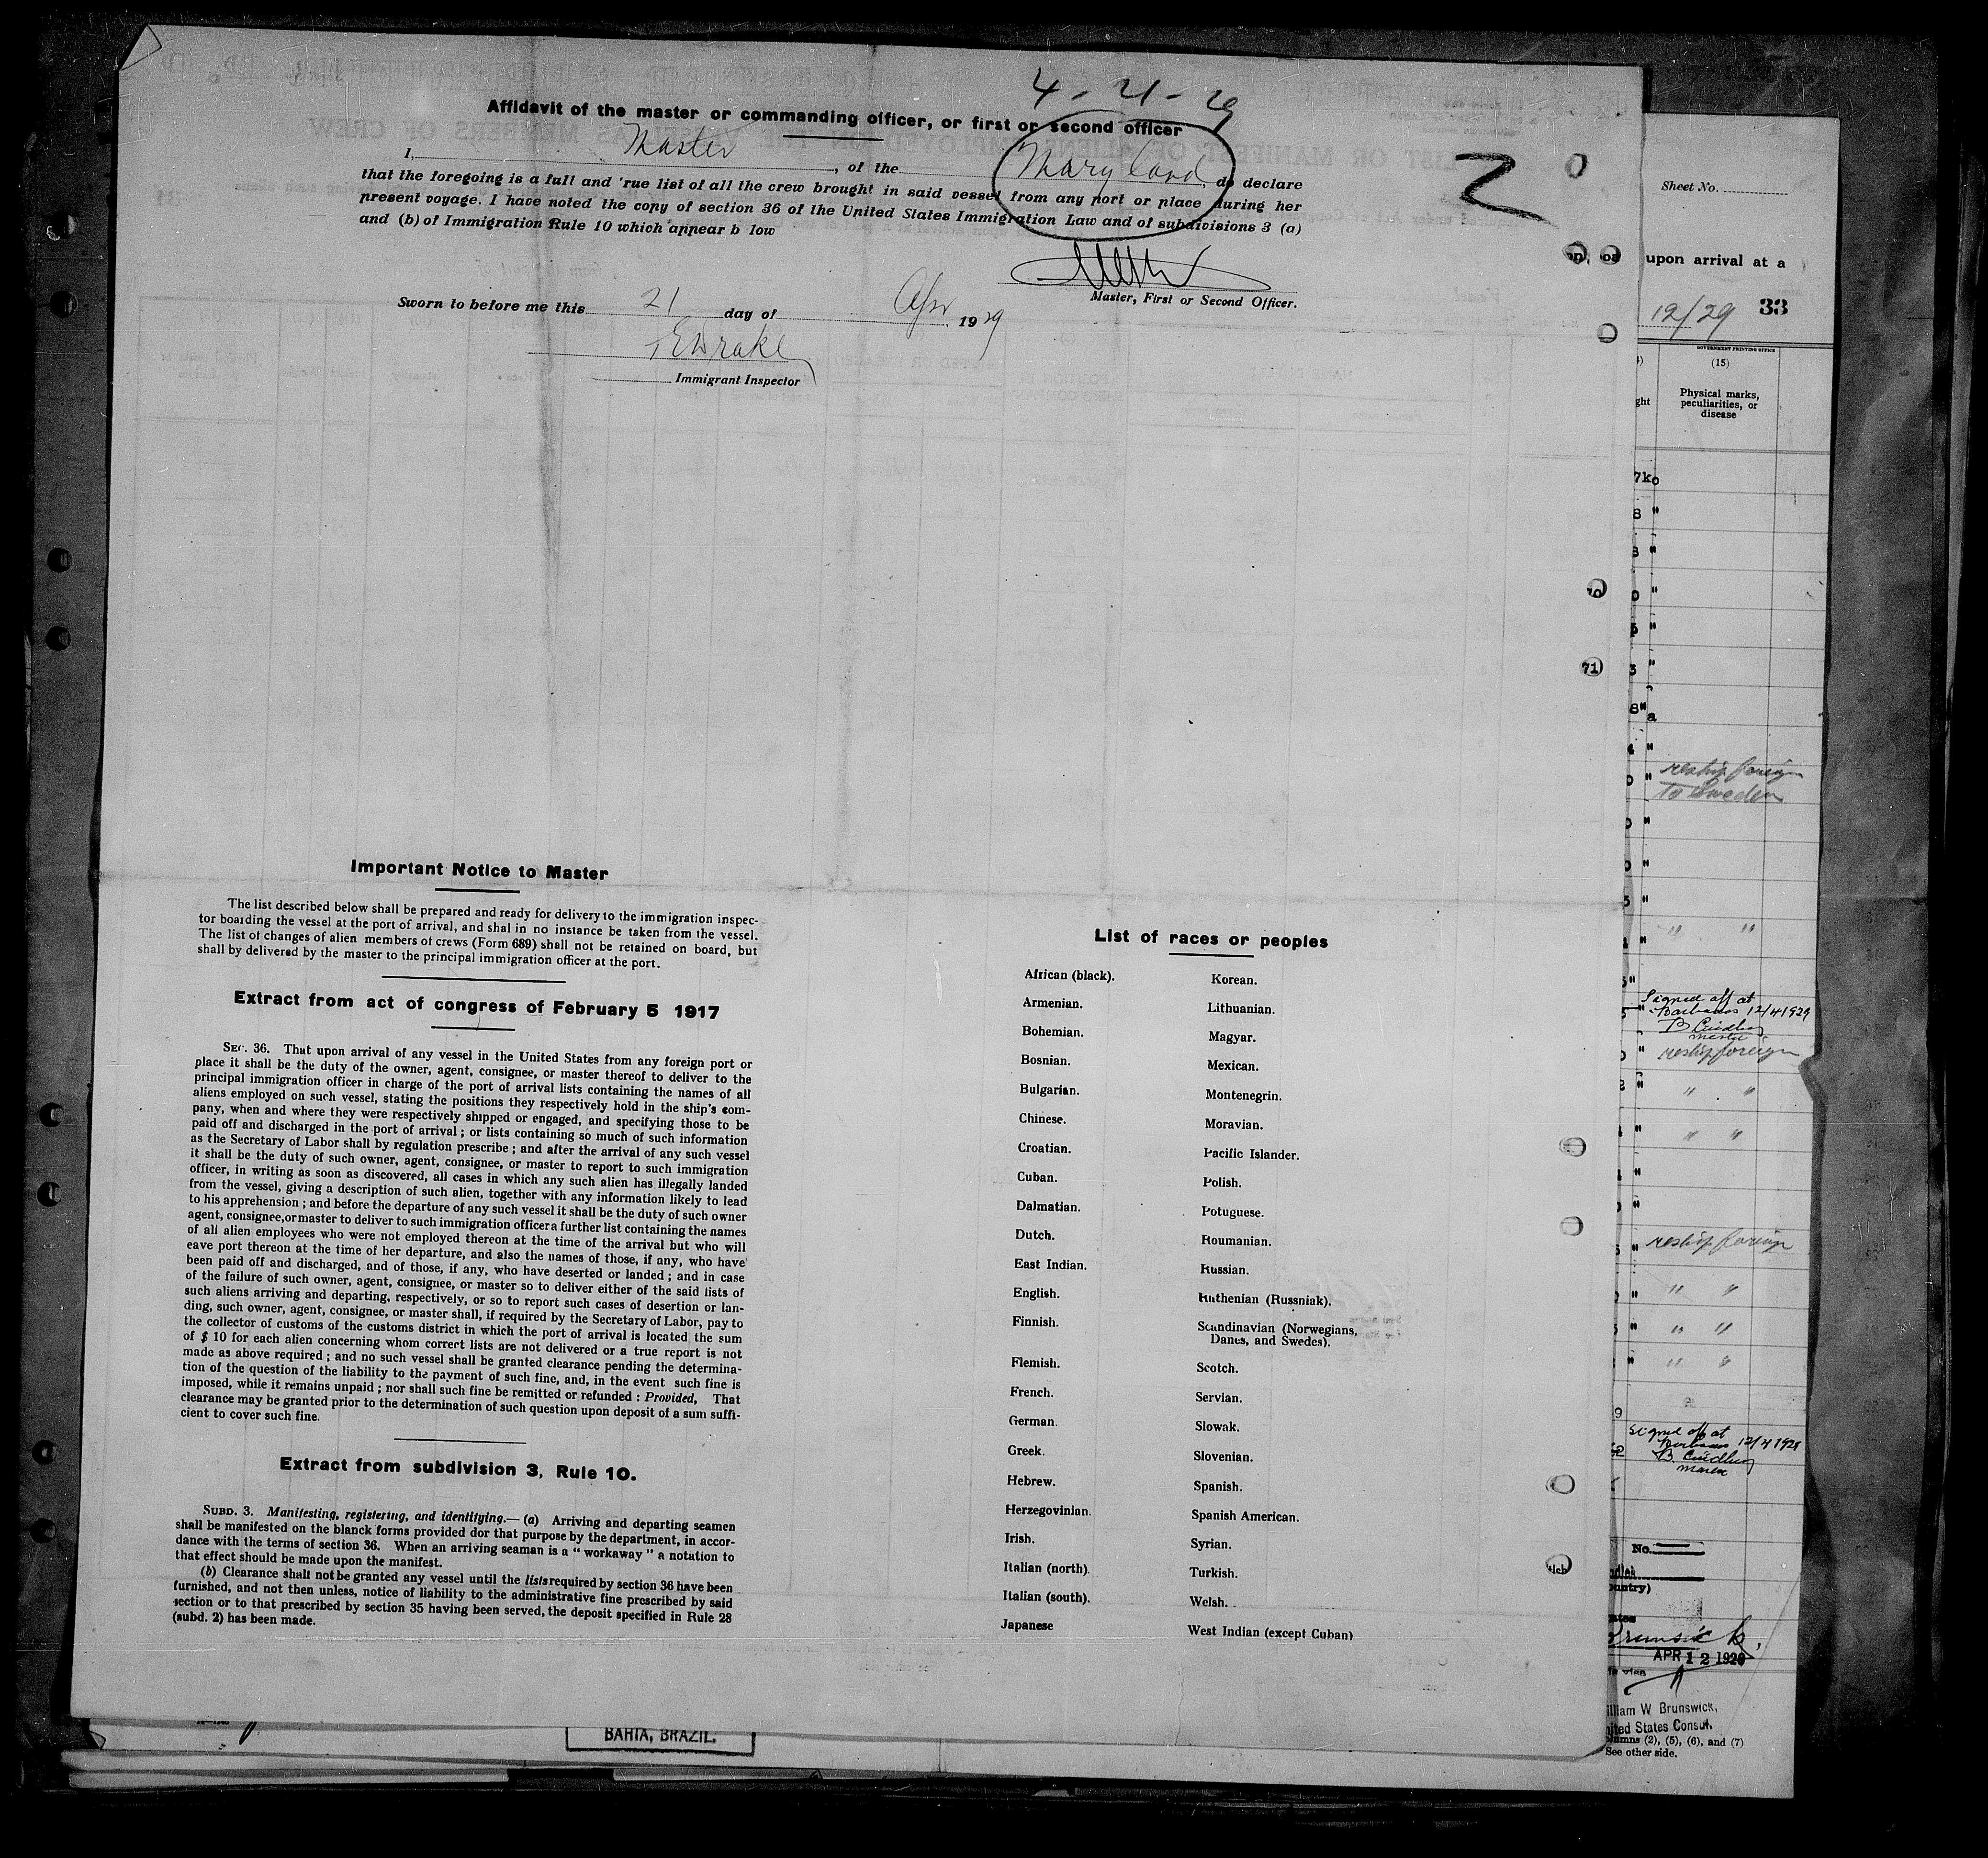 4-21-29
Affidavit of the master or commanding officer, or first or second officer
I, Master, of the Maryland do declare
that the foregoing is a full and 'rue list of all the crew brought in said vessel from any port or place during her
present voyage. I have noted the copy of section 36 of the United States Immigration Law and of subdivisions 3 (a)
and (b) of Immigration Rule 10 which appear b low
Master, First or Second Officer.
Sworn to before me this 21 day of Apr 1929
Drake
Immigrant Inspector
2
Important Notice to Master
The list described below shall be prepared and ready for delivery to the immigration inspec-
tor boarding the vessel at the port of arrival, and shal in no instance be taken from the vessel.
The list of changes of alien members of crews (Form 689) shall not be retained on board, but
shall by delivered by the master to the principal immigration officer at the port.
Extract from act of congress of February 5 1917
SEC. 36. That upon arrival of any vessel in the United States from any foreign port or
place it shall be the duty of the owner, agent, consignee, or master thereof to deliver to the
principal immigration officer in charge of the port of arrival lists containing the names of all
aliens employed on such vessel, stating the positions they respectively hold in the ship's com-
pany, when and where they were respectively shipped or engaged, and specifying those to be
paid off and discharged in the port of arrival ; or lists containing so much of such information
as the Secretary of Labor shall by regulation prescribe ; and after the arrival of any such vessel
it shall be the duty of such owner, agent, consignee, or master to report to such immigration
officer, in writing as soon as discovered, all cases in which any such alien has illegally landed
from the vessel, giving a description of such alien, together with any information likely to lead
to his apprehension ; and before the departure of any such vessel it shall be the duty of such owner
agent, consignee,ormaster to deliver to such immigration officera further list containing the names
of all alien employees who were not employed thereon at the time of the arrival but who will
eave port thereon at the time of her departure, and also the names of those, if any, who have
been paid off and discharged, and of those, if any, who have deserted or landed ; and in case
of the failure of such owner, agent, consignee, or master so to deliver either of the said lists of
such aliens arriving and departing, respectively, or so to report such cases of desertion or lan-
ding, such owner, agent, consignee, or master shall, if required by the Secretary of Labor, pay to
the collector of customs of the customs district in which the port of arrival is located the sum
of $ 10 for each alien concerning whom correct lists are not delivered or a true report is not
made as above required ; and no such vessel shall be granted clearance pending the determina-
tion of the question of the liability to the payment of such fine, and, in the event such fine is
imposed, while it remains unpaid ; nor shall such fine be remitted or refunded : Provided, That
clearance may be granted prior to the determination of such question upon deposit of a sum suffi-
cient to cover such fine.
Extract from subdivision 3, Rule 10.
SUBD. 3. Manifesting, registering, and identifying.— (a) Arriving and departing seamen
shall be manifested on the blanck forms provided dor that purpose by the department, in accor-
dance with the terms of section 36. When an arriving seaman is a " workaway " a notation to
that effect should be made upon the manifest.
(b) Clearance shall not be granted any vessel until the lists required by section 36 have been
furnished, and not then unless, notice of liability to the administrative fine prescribed by said
section or to that prescribed by section 35 having been served, the deposit specified in Rule 28
(subd. 2) has been made.
List of races or peoples
African (black).
Armenian.
Bohemian.
Bosnian.
Bulgarian.
Chinese.
Croatian.
Cuban.
Dalmatian.
Dutch.
East Indian.
English.
Finnish.
Flemish.
French.
German.
Greek.
Hebrew.
Herzegovinian.
Irish.
Italian (north).
Italian (south).
Japanese
Korean.
Lithuanian.
Magyar.
Mexican.
Montenegrin.
Moravian.
Pacific Islander.
Polish.
Potuguese.
Roumanian.
Russian.
Ruthenian (Russniak).
Scandinavian (Norwegians,
Danes, and Swedes).
Scotch.
Servian.
Slowak.
Slovenian.
Spanish.
Spanish American.
Syrian.
Turkish.
Welsh.
West Indian (except Cuban)
BAHIA, BRAZIL.
Sheet No.
upon arrival at a
12/29 33
GOVERNMENT PRINTING OFFICE
(15)
Physical marks,
peculiarities, or
disease
reship foreign
to Sweden
" "
Signed off at
Barbados 12/4 1929
master
reship foreign
" "
" "
reship foreign
" "
" "
" "
Signed off at
Barbados 12/4 1929
master
No.
APR 12 1929
William W Brunswick,
United States Consul.
columns (2), (5), (6), and (7)
See other side.